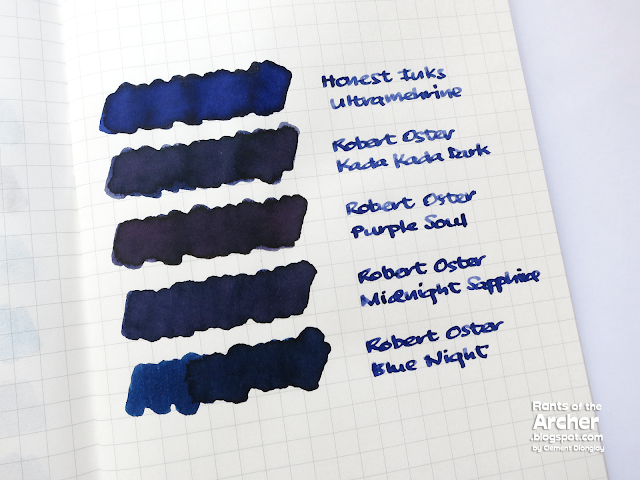 Honest Inks
Ultramehrine
Robert Oster
Kada Kada Dark
Robert Oster
Purple Soul
Robert Oster
Midnight Sapphire
Robert Oster
Blue Night
Rants of the
Archer
.blogspot.com
by Clement Dionglay